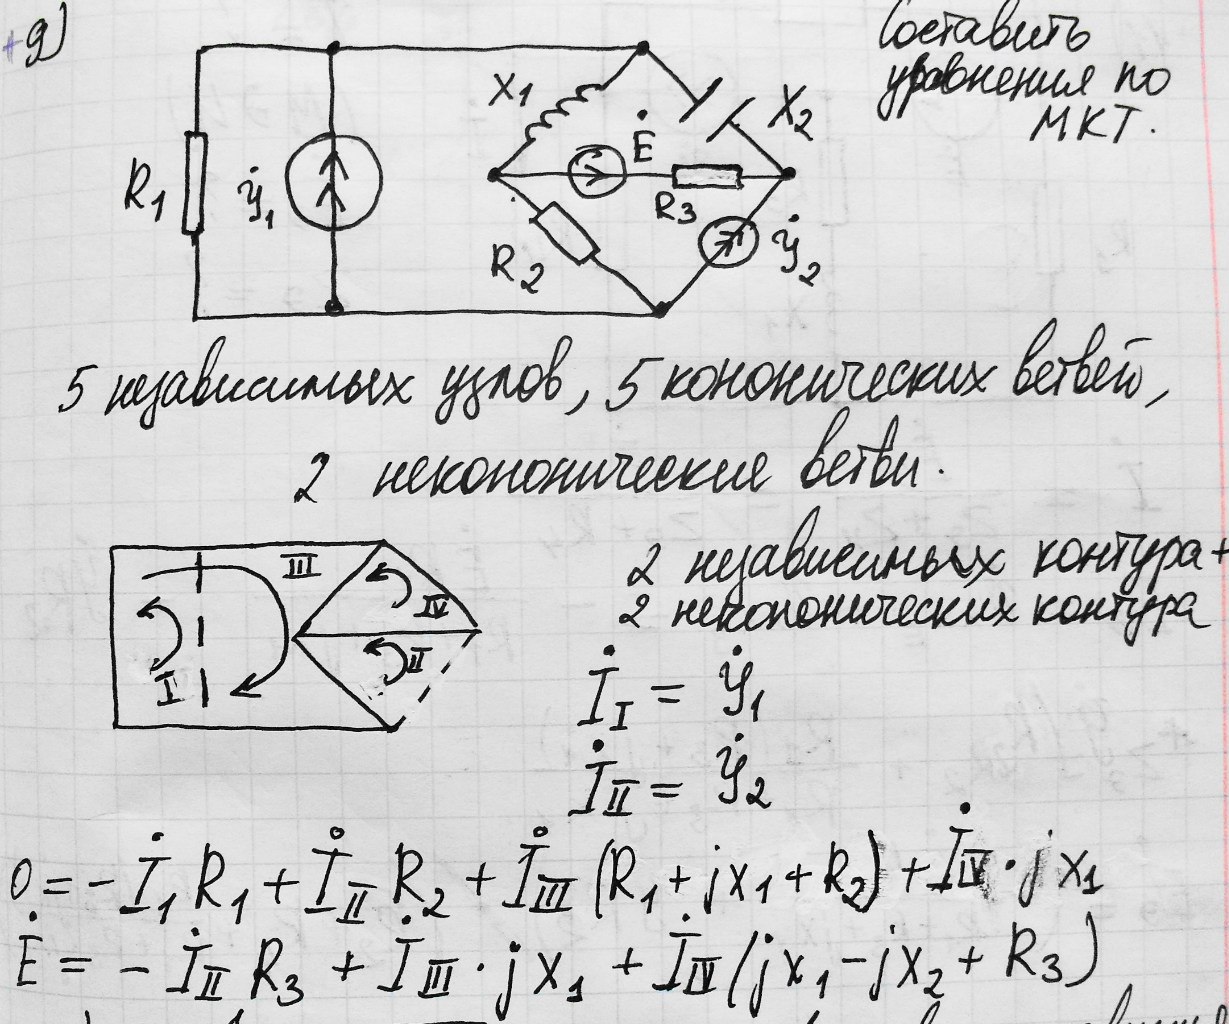 + g)
Составить
уравнения по
МКТ.
X1
X2
Ė
R1
ẏ1
R3
ẏ2
R2
5 независимых узлов, 5 кононических ветвей,
2 некононические ветви.
2 независимых контура +
2 некононических контура
III
IV
II
I
İI = ẏ1
İII = ẏ2
0 = - İ1 R1 + İII R2 + İIII (R1 + jx1 + R2) + İIV · j x1
Ė = - İII R3 + İIII · j x1 + İIV (jx1 - jx2 + R3)